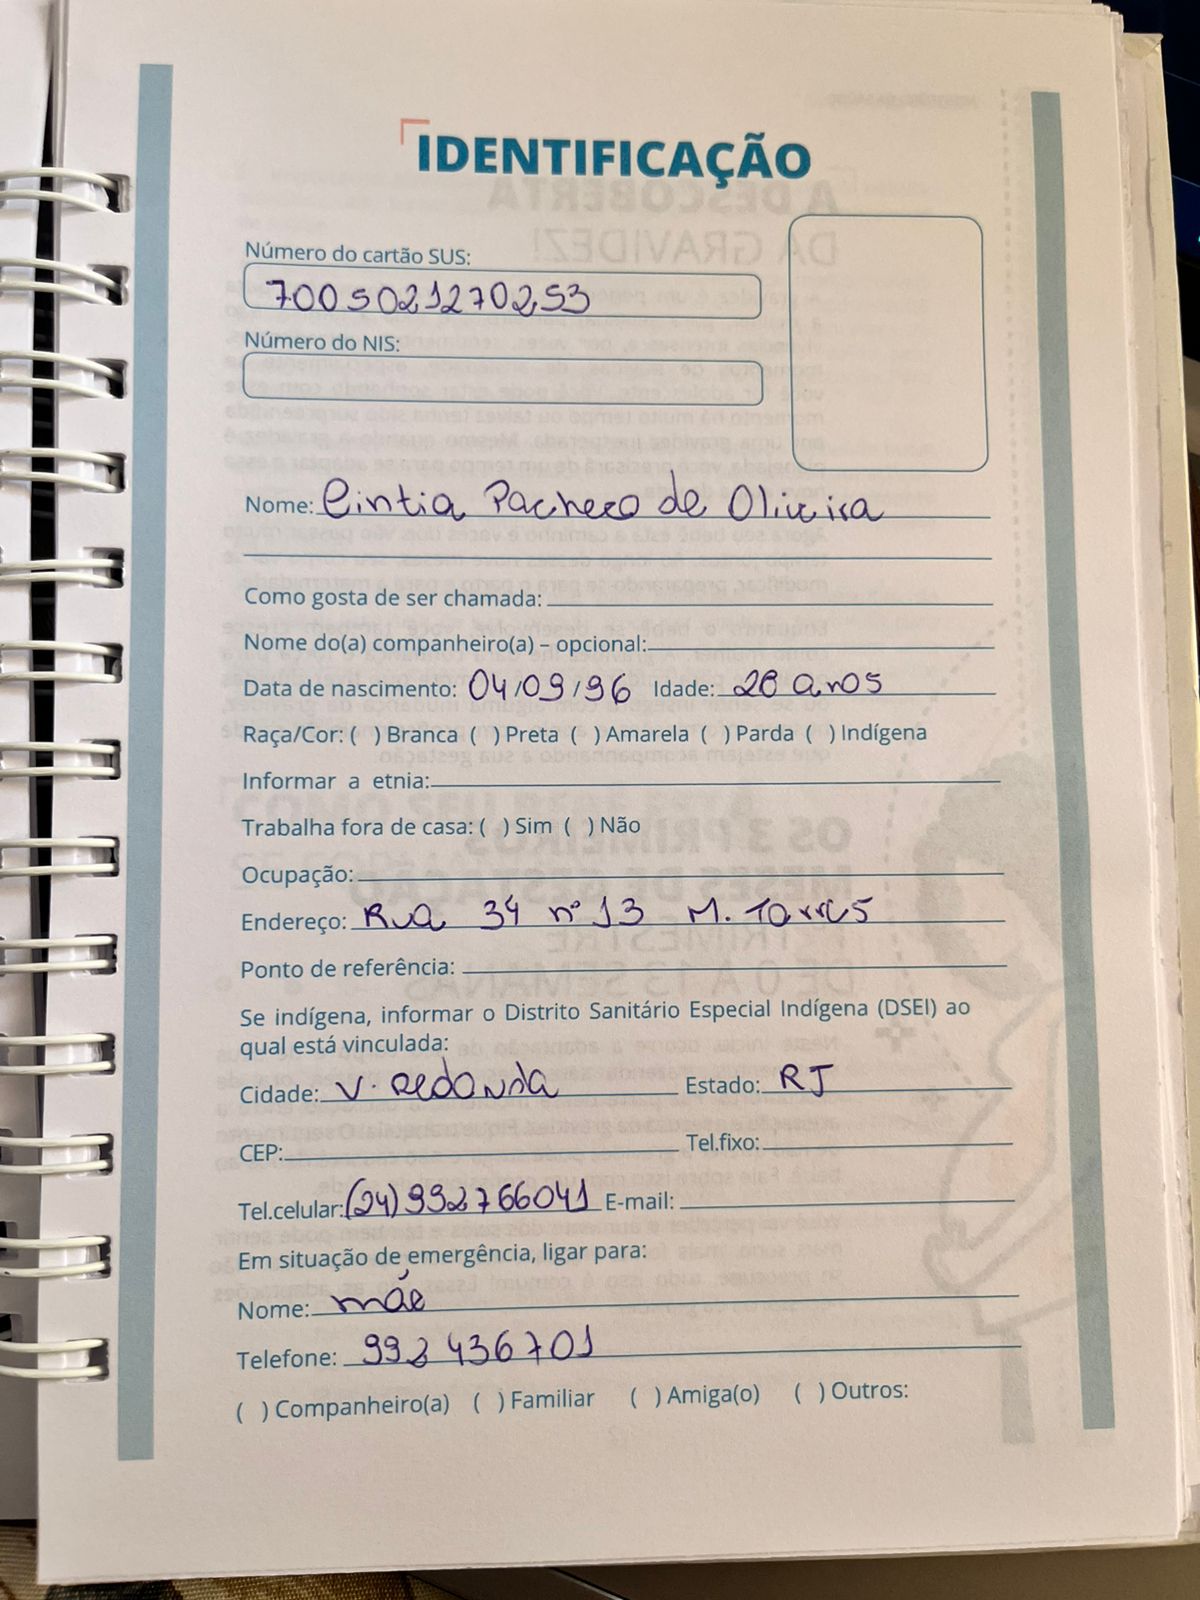 IDENTIFICAÇÃO
Número do cartão SUS:
700502127025​3
Número do NIS:
Nome: Cintia Pacheco de Oliveira
Como gosta de ser chamada:
Nome do(a) companheiro(a) – opcional:
Data de nascimento: 04/09/96 Idade: 28 anos
Raça/Cor: ( ) Branca ( ) Preta ( ) Amarela ( ) Parda ( ) Indígena
Informar a etnia:
Trabalha fora de casa: ( ) Sim ( ) Não
Ocupação:
Endereço: Rua 34 nº 13 M. Torres
Ponto de referência:
Se indígena, informar o Distrito Sanitário Especial Indígena (DSEI) ao
qual está vinculada:
Cidade: V. Redonda Estado: RJ
CEP: Tel.fixo:
Tel.celular: (24) 992766041 E-mail:
Em situação de emergência, ligar para:
Nome: mãe
Telefone: 992436701
( ) Companheiro(a) ( ) Familiar ( ) Amiga(o) ( ) Outros: